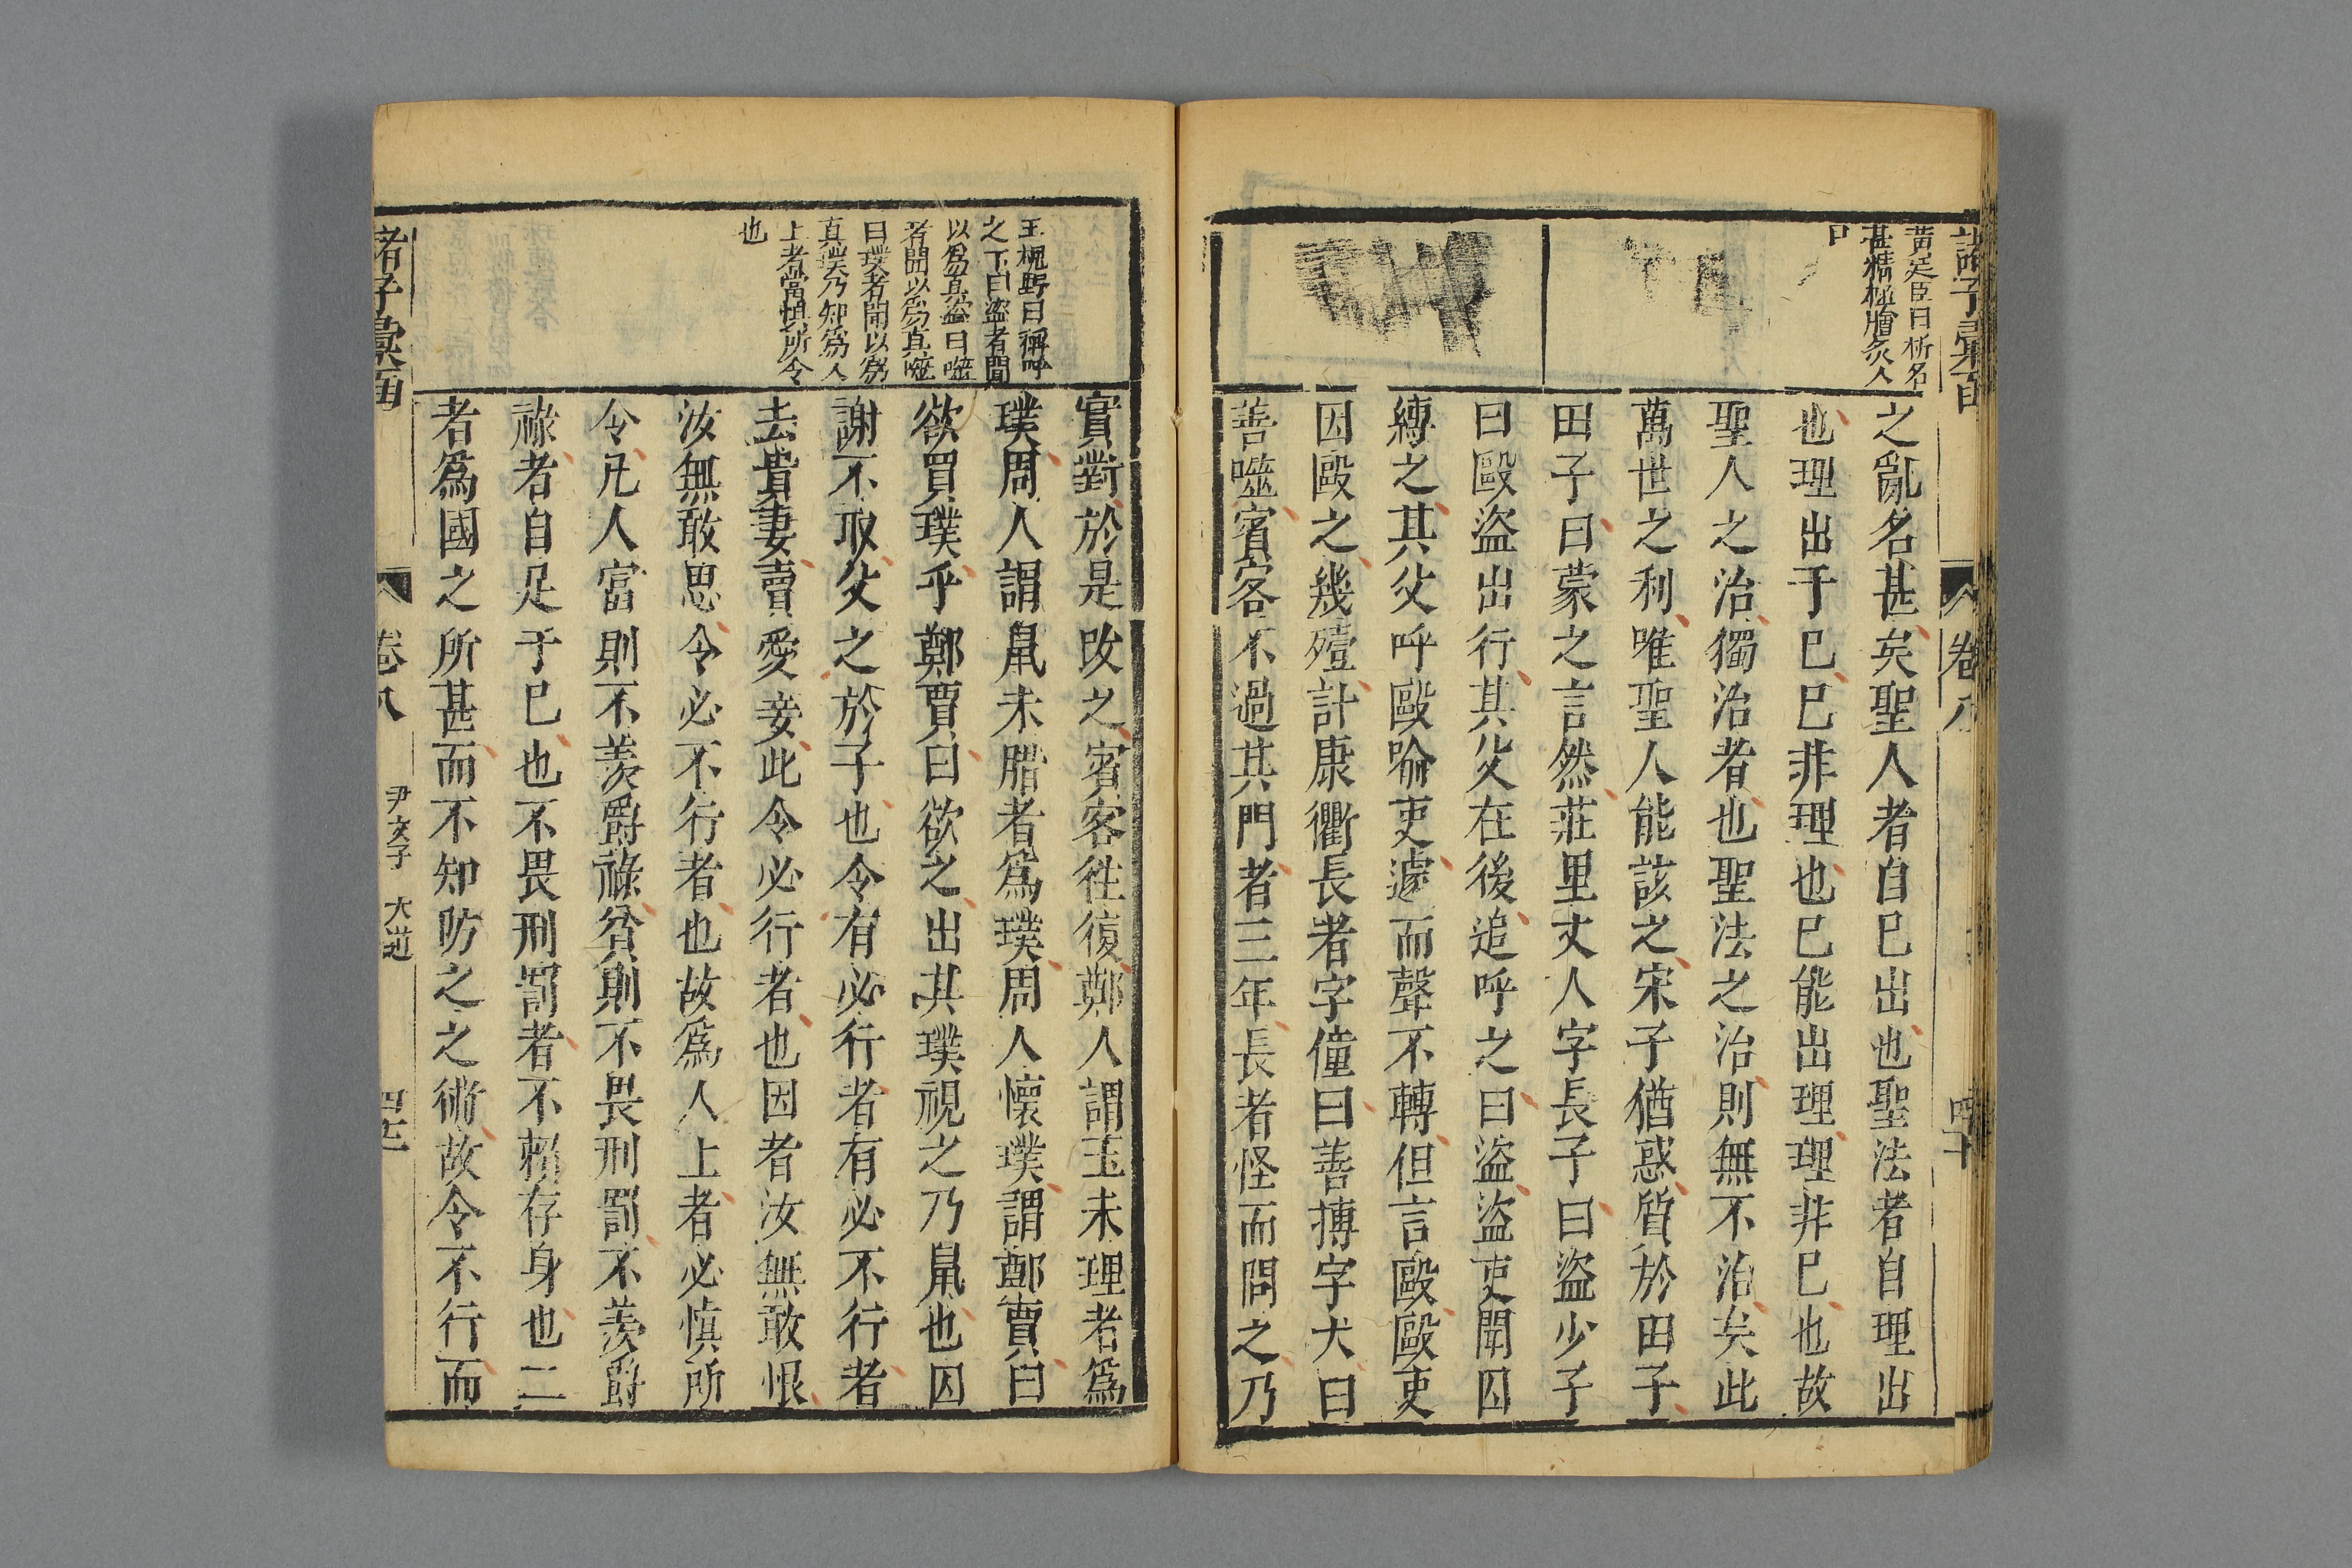 諸子彙函
卷八
黃足臣曰析名
甚精極膾炙人
口
之亂名甚矣聖人者自巳出也聖法者自理出
也理出于巳巳非理也巳能出理理非巳也故
聖人之治獨治者也聖法之治則無不治矣此
萬世之利唯聖人能該之宋子猶惑質於田子
田子曰蒙之言然莊里丈人字長子曰盜少子
曰毆盜出行其父在後追呼之曰盜盜吏聞因
縛之其父呼毆喻吏遽而聲不轉但言毆毆吏
因毆之幾殪計康衢長者字僮曰善搏字犬曰
善噬賓客不過其門者三年長者怪而問之乃
王槐野曰稱呼
之下曰盜者聞
以爲眞盜曰噬
者聞以爲眞噬
曰璞者聞以爲
眞璞乃知爲人
上者當愼所令
也
實對於是改之賓客往復鄭人謂玉未理者爲
璞周人謂鼠未腊者爲璞周人懷璞謂鄭賈曰
欲買璞乎鄭賈曰欲之出其璞視之乃鼠也因
謝不取父之於子也令有必行者有必不行者
去貴妻賣愛妾此令必行者也因者汝無敢恨
汝無敢思令必不行者也故爲人上者必愼所
令凡人富則不羨爵祿貧則不畏刑罰不羨爵
祿者自足于巳也不畏刑罰者不賴存身也二
者爲國之所甚而不知防之之術故令不行而
諸子彙函
卷八
尹文子 大道